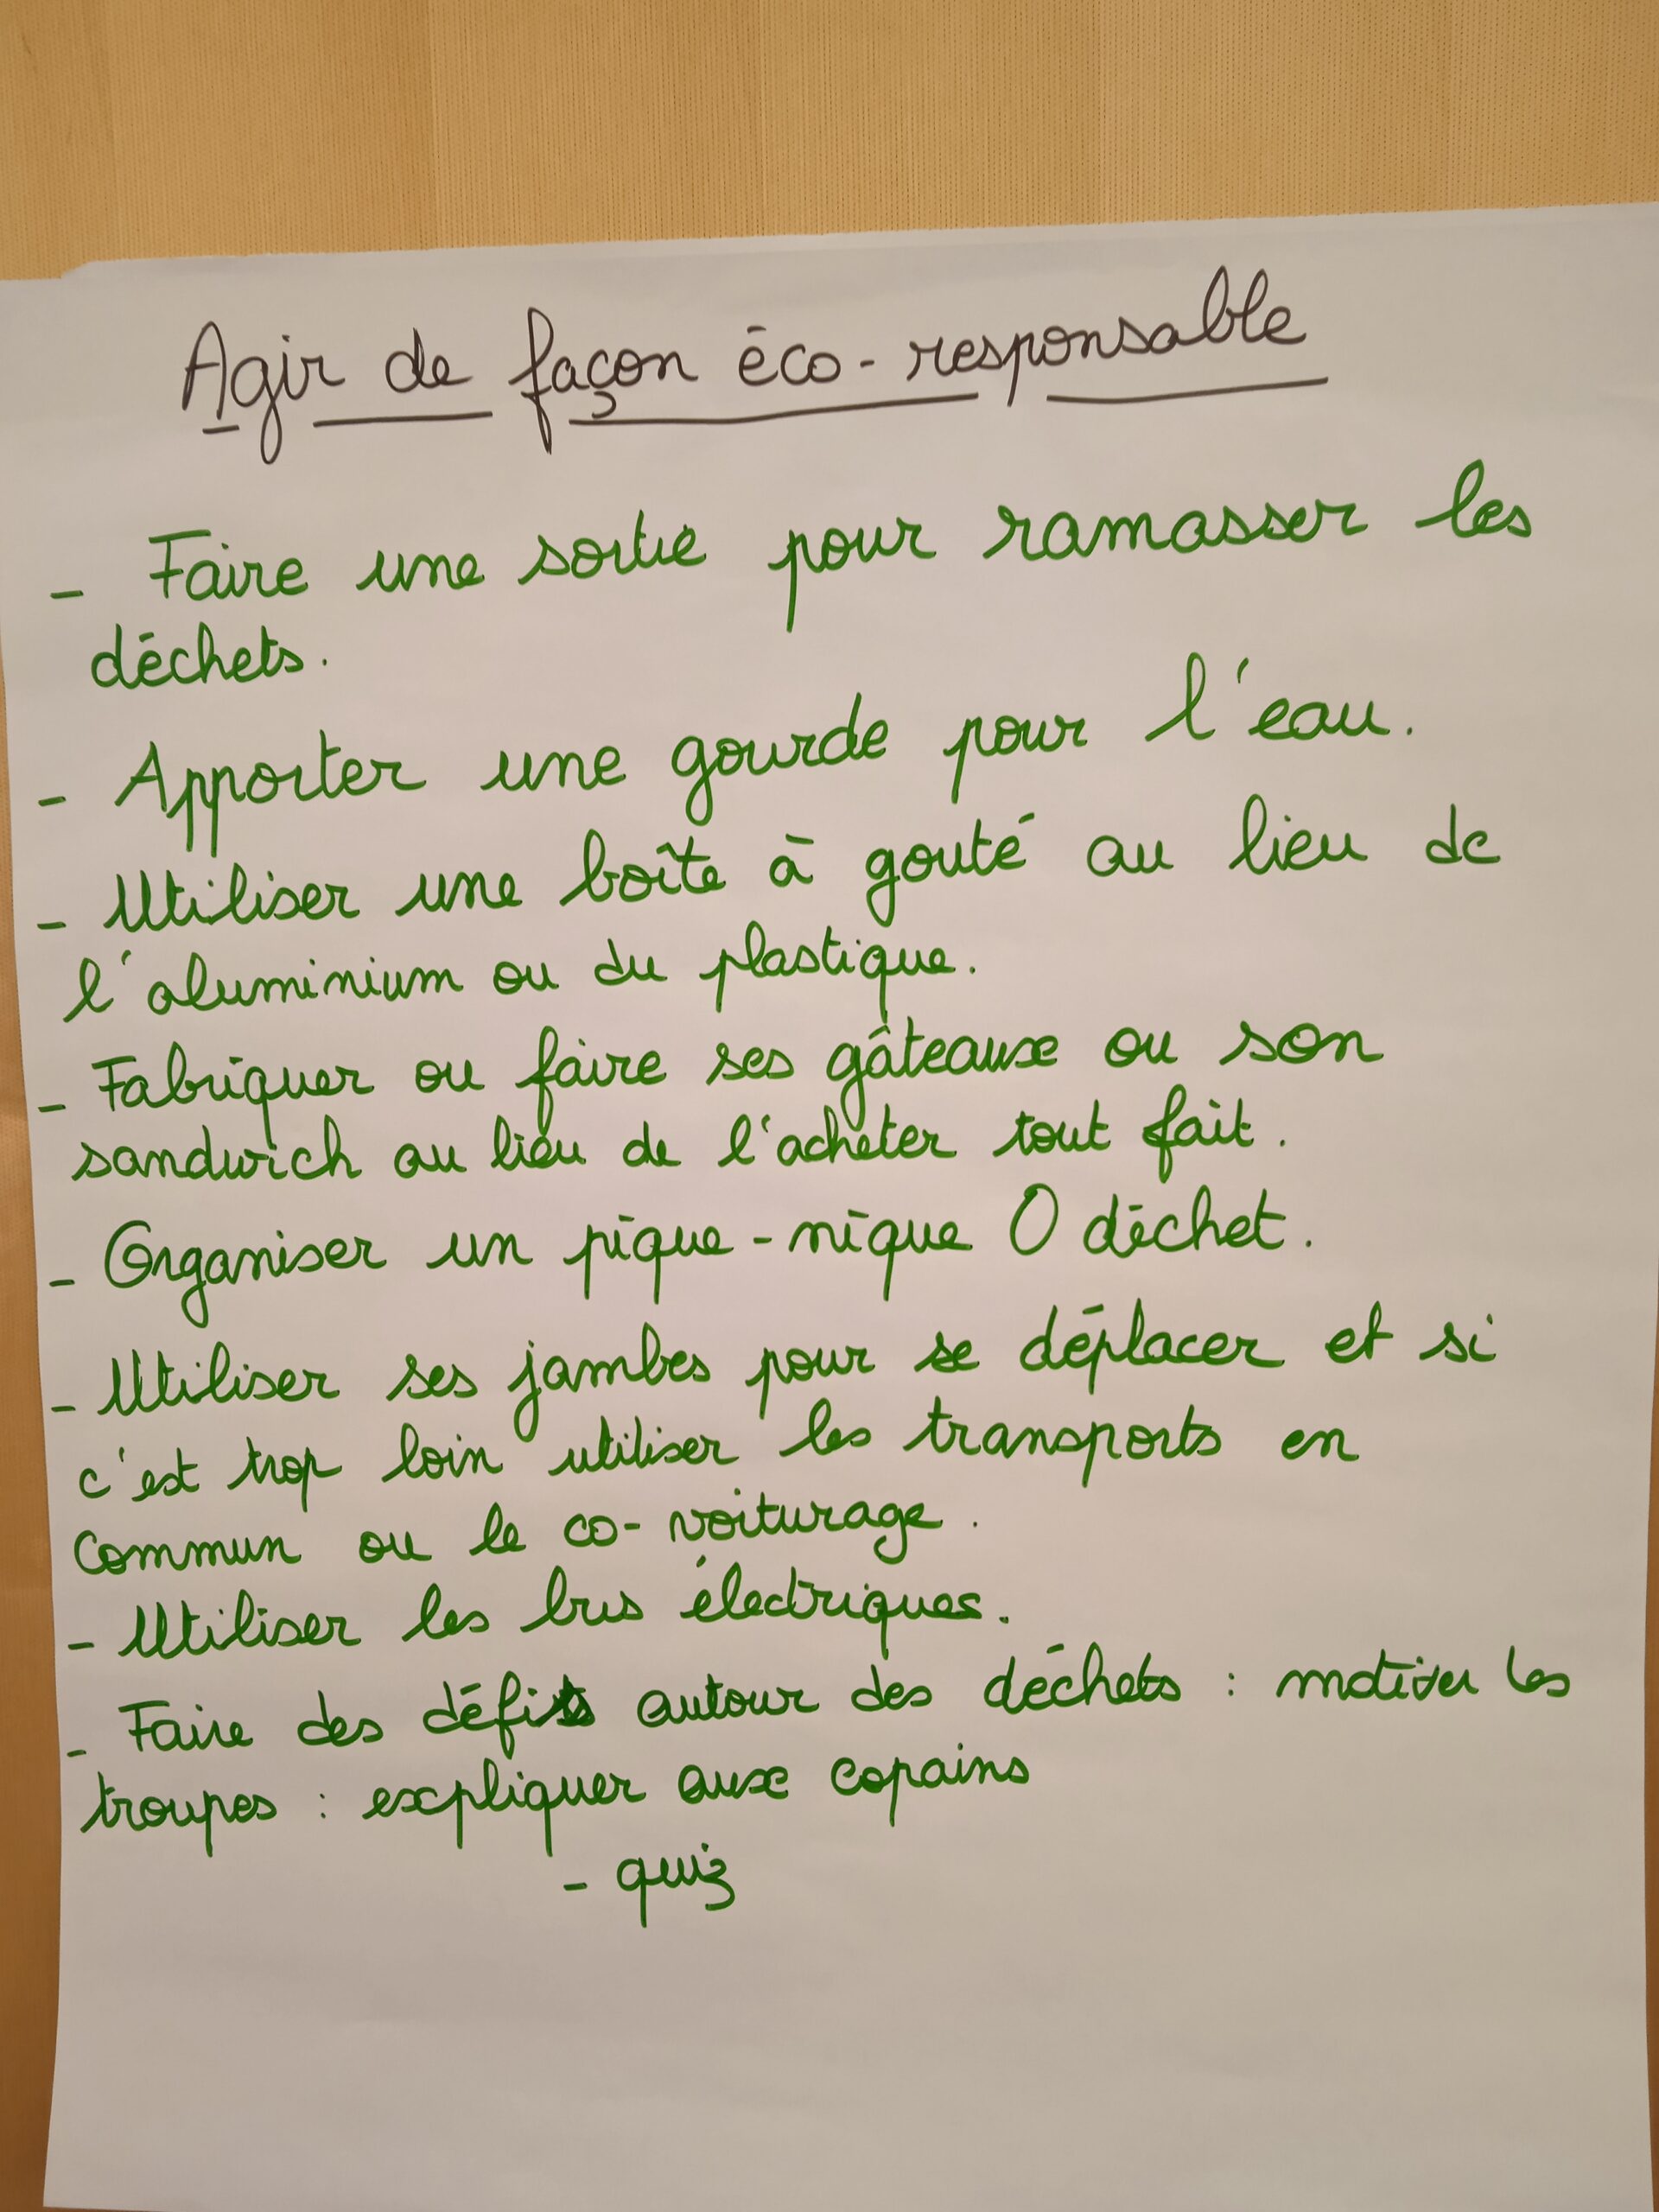 Agir de façon éco-responsable
- Faire une sortie pour ramasser les
déchets.
- Apporter une gourde pour l'eau.
- Utiliser une boîte à gouté au lieu de
l'aluminium ou du plastique.
- Fabriquer ou faire ses gâteaux ou son
sandwich au lieu de l'acheter tout fait.
- Organiser un pique-nique 0 déchet.
- Utiliser ses jambes pour se déplacer et si
c'est trop loin utiliser les transports en
commun ou le co-voiturage.
- Utiliser les bus électriques.
- Faire des défis autour des déchets : motiver les
troupes : expliquer aux copains
- quiz